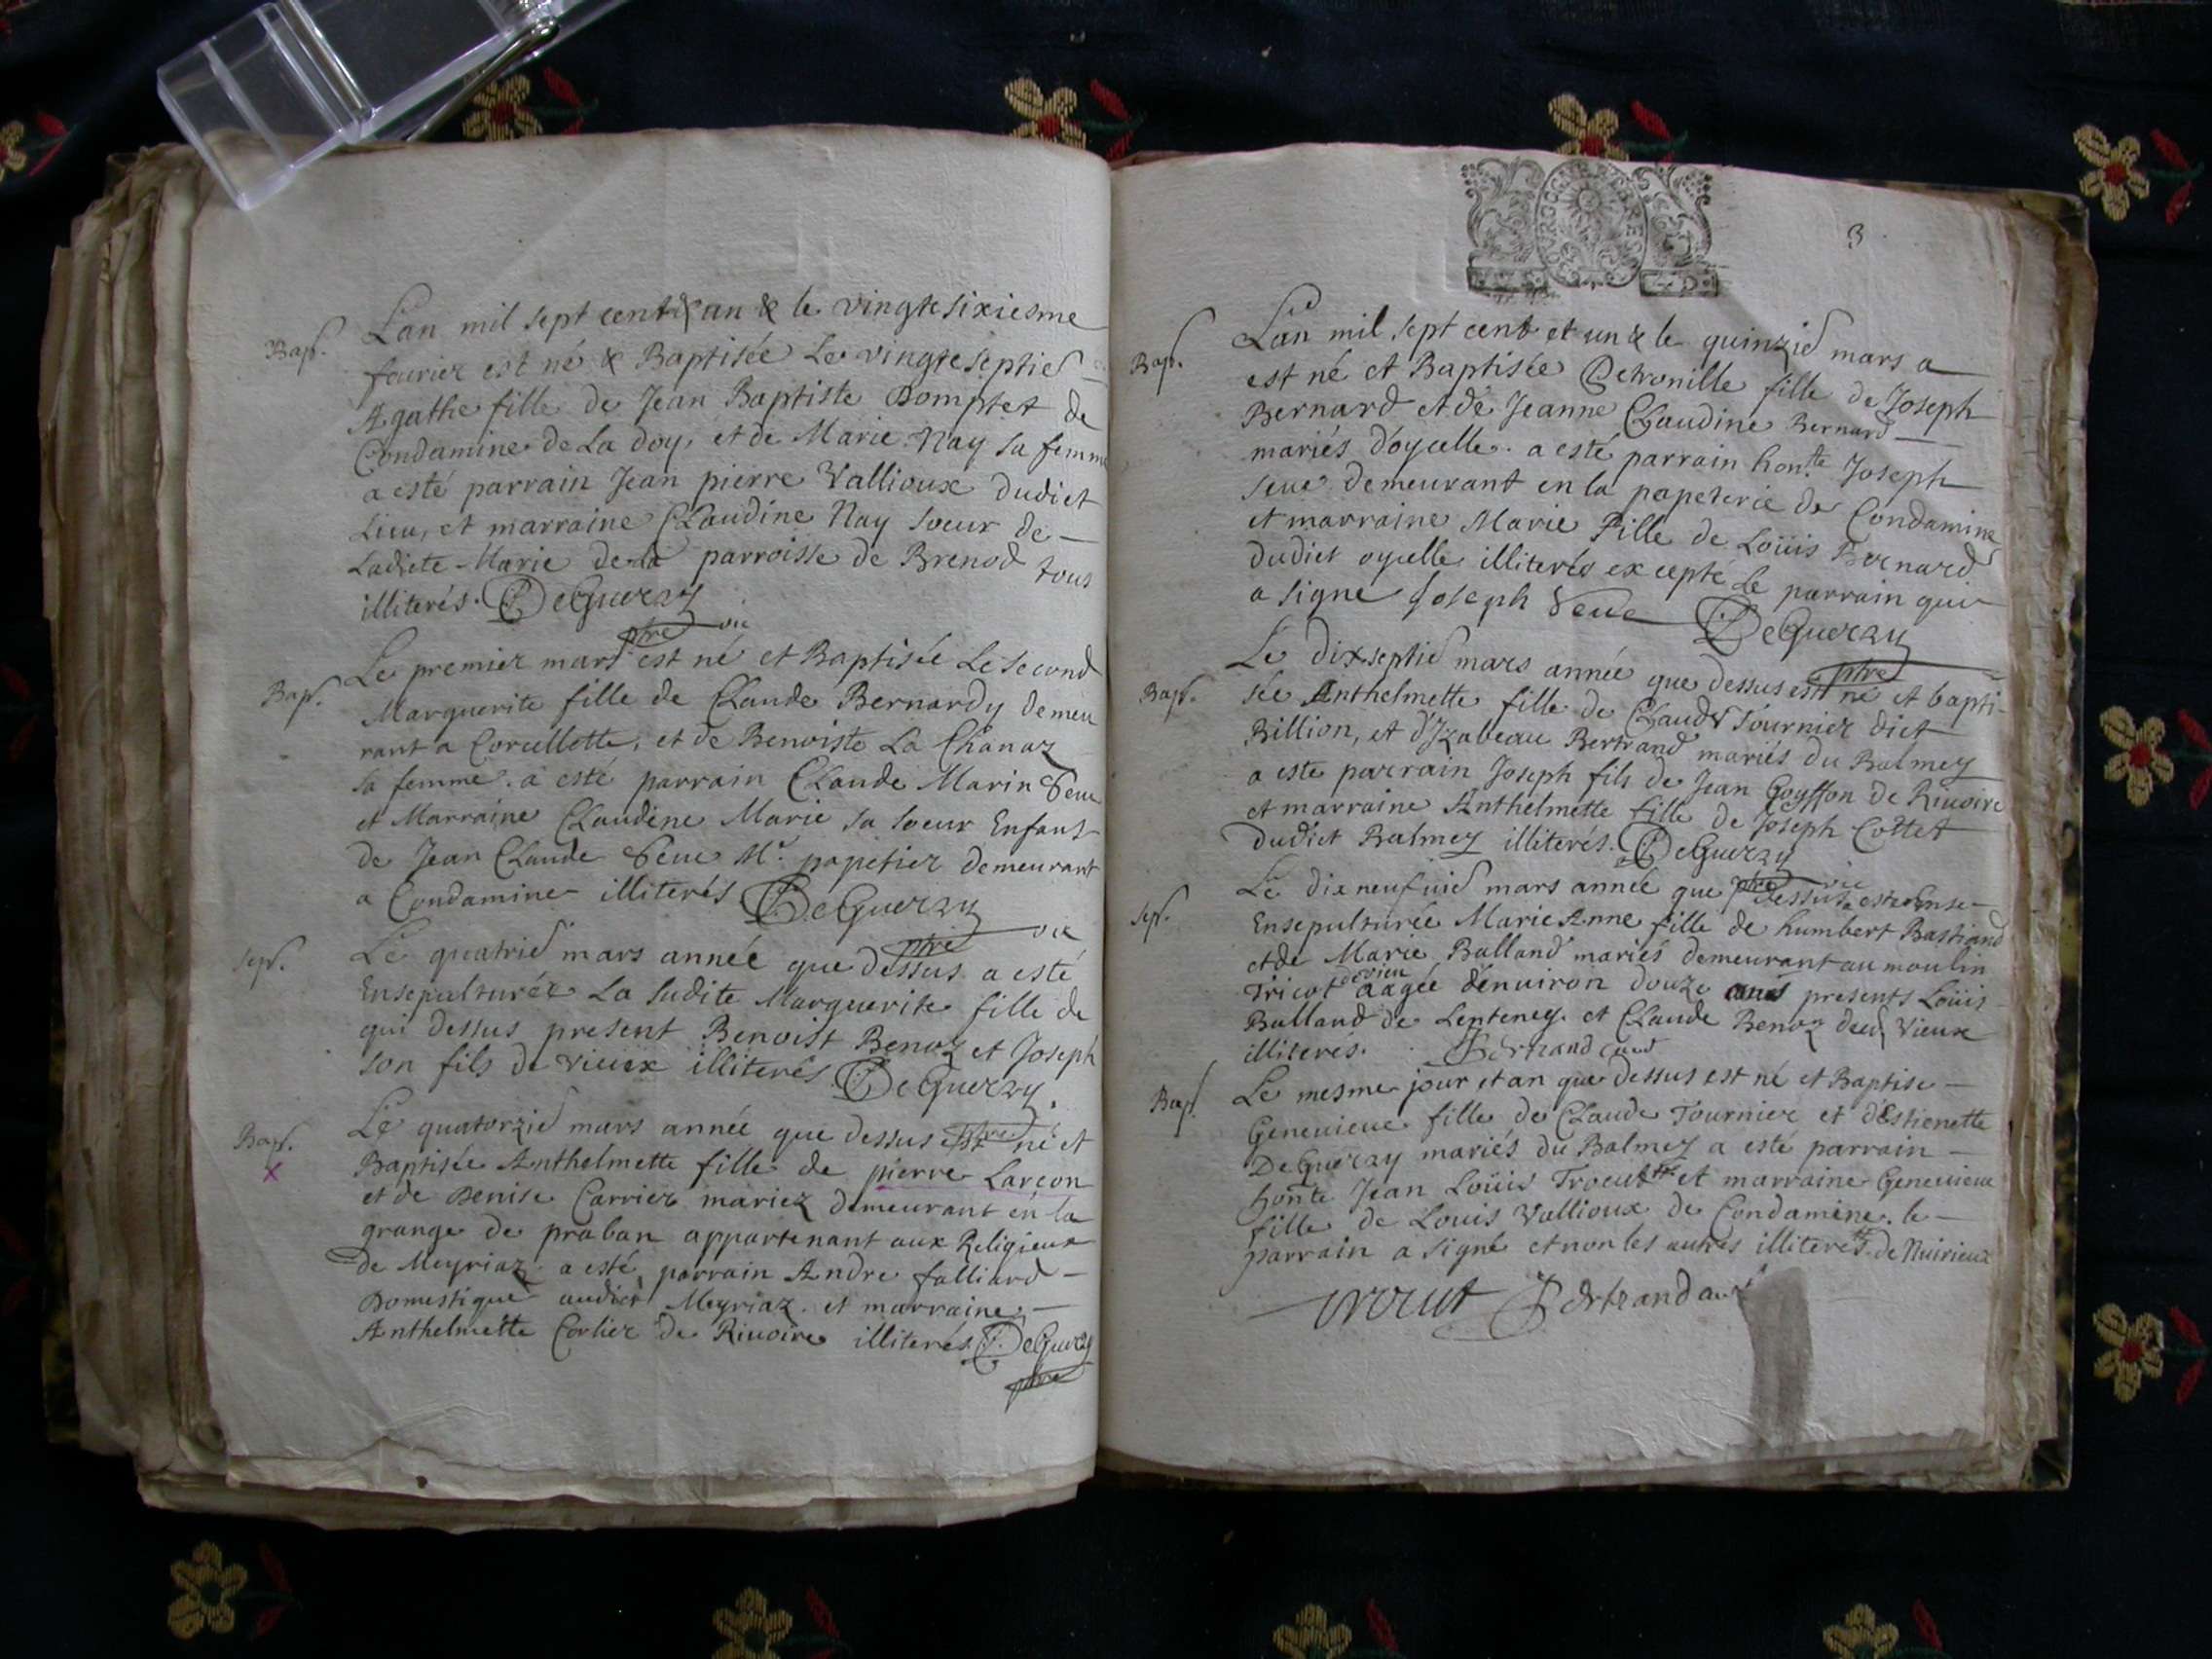 Bap.
L'an mil sept cent & un & le vingte sixiesme
feurier est né & Baptisée Le vingte septie
Agathe fille de Jean Baptiste Domptet de
Condamine de La doy, et de Marie Nay sa femme
a esté parrain Jean pierre Vallioux dudict
Lieu, et marraine CLaudine Nay soeur de
Ladicte Marie de la parroisse de Brenod tous
illiterés. DeGuerzy
ptre vic
Bap.
Le premier mars est né et Baptisée Le second
Marguerite fille de CLaude Bernardy demeu
rant a Corcellette, et de Benoiste La Chanaz
sa femme. a esté parrain CLaude Marin Seue
et Marraine CLaudine Marie sa soeur Enfans
de Jean CLaude Seue Mr. papetier demeurant
a Condamine illiterés DeGuerzy
ptre vic
Sep.
Le quatrie mars année que dessus a esté
Ensepulturée La sudite Marguerite fille de
qui dessus present Benoist Benoz et Joseph
son fils de vieux illiterés DeGuerzy
ptre
Bap.
x
Le quatorzie mars année que dessus est né et
Baptisée Anthelmette fille de pierre Larcon
et de Denise Carrier mariez demeurant en la
grange de praban appartenant aux Religieux
de Meyriaz. a esté parrain Andre falliard
Domestique audict Meyriaz. et marraine
Anthelmette Corlier de Riuoire illiterés DeGuerzy
ptre
3
Bap.
L'an mil sept cent et un & le quinzie mars a
est né et Baptisée Petronille fille de Joseph
Bernard et de Jeanne CLaudine Bernard
mariés d'oyselle. a esté parrain honte Joseph
Seue demeurant en la papeterie de Condamine
et marraine Marie Fille de Loüis Bernard
dudict oyselle illiterés excepté Le parrain qui
a signé Joseph Seue DeGuerzy
ptre
Bap.
Le dixseptie mars année que dessus est né et bapti-
sée Anthelmette fille de CLaude Tournier dict
Billion, et d'Izabeau Bertrand mariés du Balmey
a este parrain Joseph fils de Jean Goyffon de Riuoire
et marraine Anthelmette fille de Joseph Cottet
dudict Balmey illiterés. DeGuerzy
ptre vic
Sep.
Le dixneufuie mars année que dessus a esté Ense-
Ensepulturée Marie Anne fille de humbert Bastiand
et de Marie Balland mariés demeurant au moulin
Tricot aagée d'enuiron douze ans presents Loüis
Balland de Lenteney et CLaude Benoz dud vieux
illiteres. Bertrand curé
Bap.
Le mesme jour et an que dessus est né et Baptise
Geneuieue fille de CLaude Tournier et d'Estienette
DeGuerzy mariés du Balmey a esté parrain
honte Jean Loüis Trocut et marraine Geneuieue
fille de Louis Vallioux de Condamine. le
parrain a signé et non les autres illiterés. de Nuirieux
trocut Bertrand curé